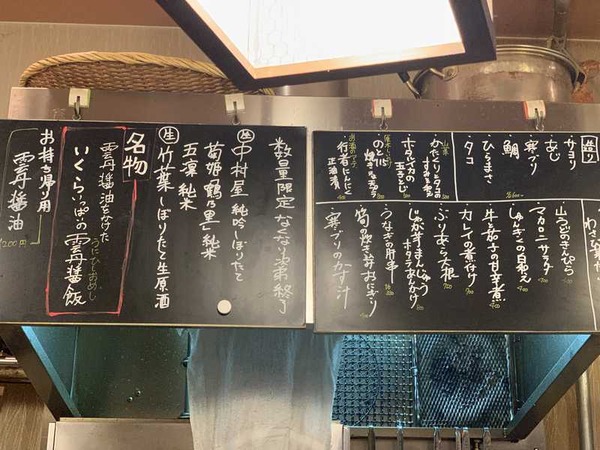 造り
サヨリ
あじ
寒ブリ
鯛
ひらまさ
タコ
山菜
かたくりの玉子
ホタルイカの玉子とじ
のどぐろ
行者にんにく正油漬
わさび
山うどのきんぴら
マカロニサラダ
しゅんぎくの白和え
牛と茄子の甘辛煮
カレイの煮付け
ぶりあら大根
じゃが芋まんじゅう
うなぎの肝串
筍の炊き
おにぎり
寒ブリのカす汁
数量限定 なくなり次第終了
中村屋 純吟しぼりたて
菊姫 鶴乃里 純米
五凛 純米
生 竹葉 しぼりたて生原酒
名物
雲丹醤油をかけた
いくらいっぱいの雲丹醤飯
うにひしおめし
お持ち帰り用
雲丹醤油